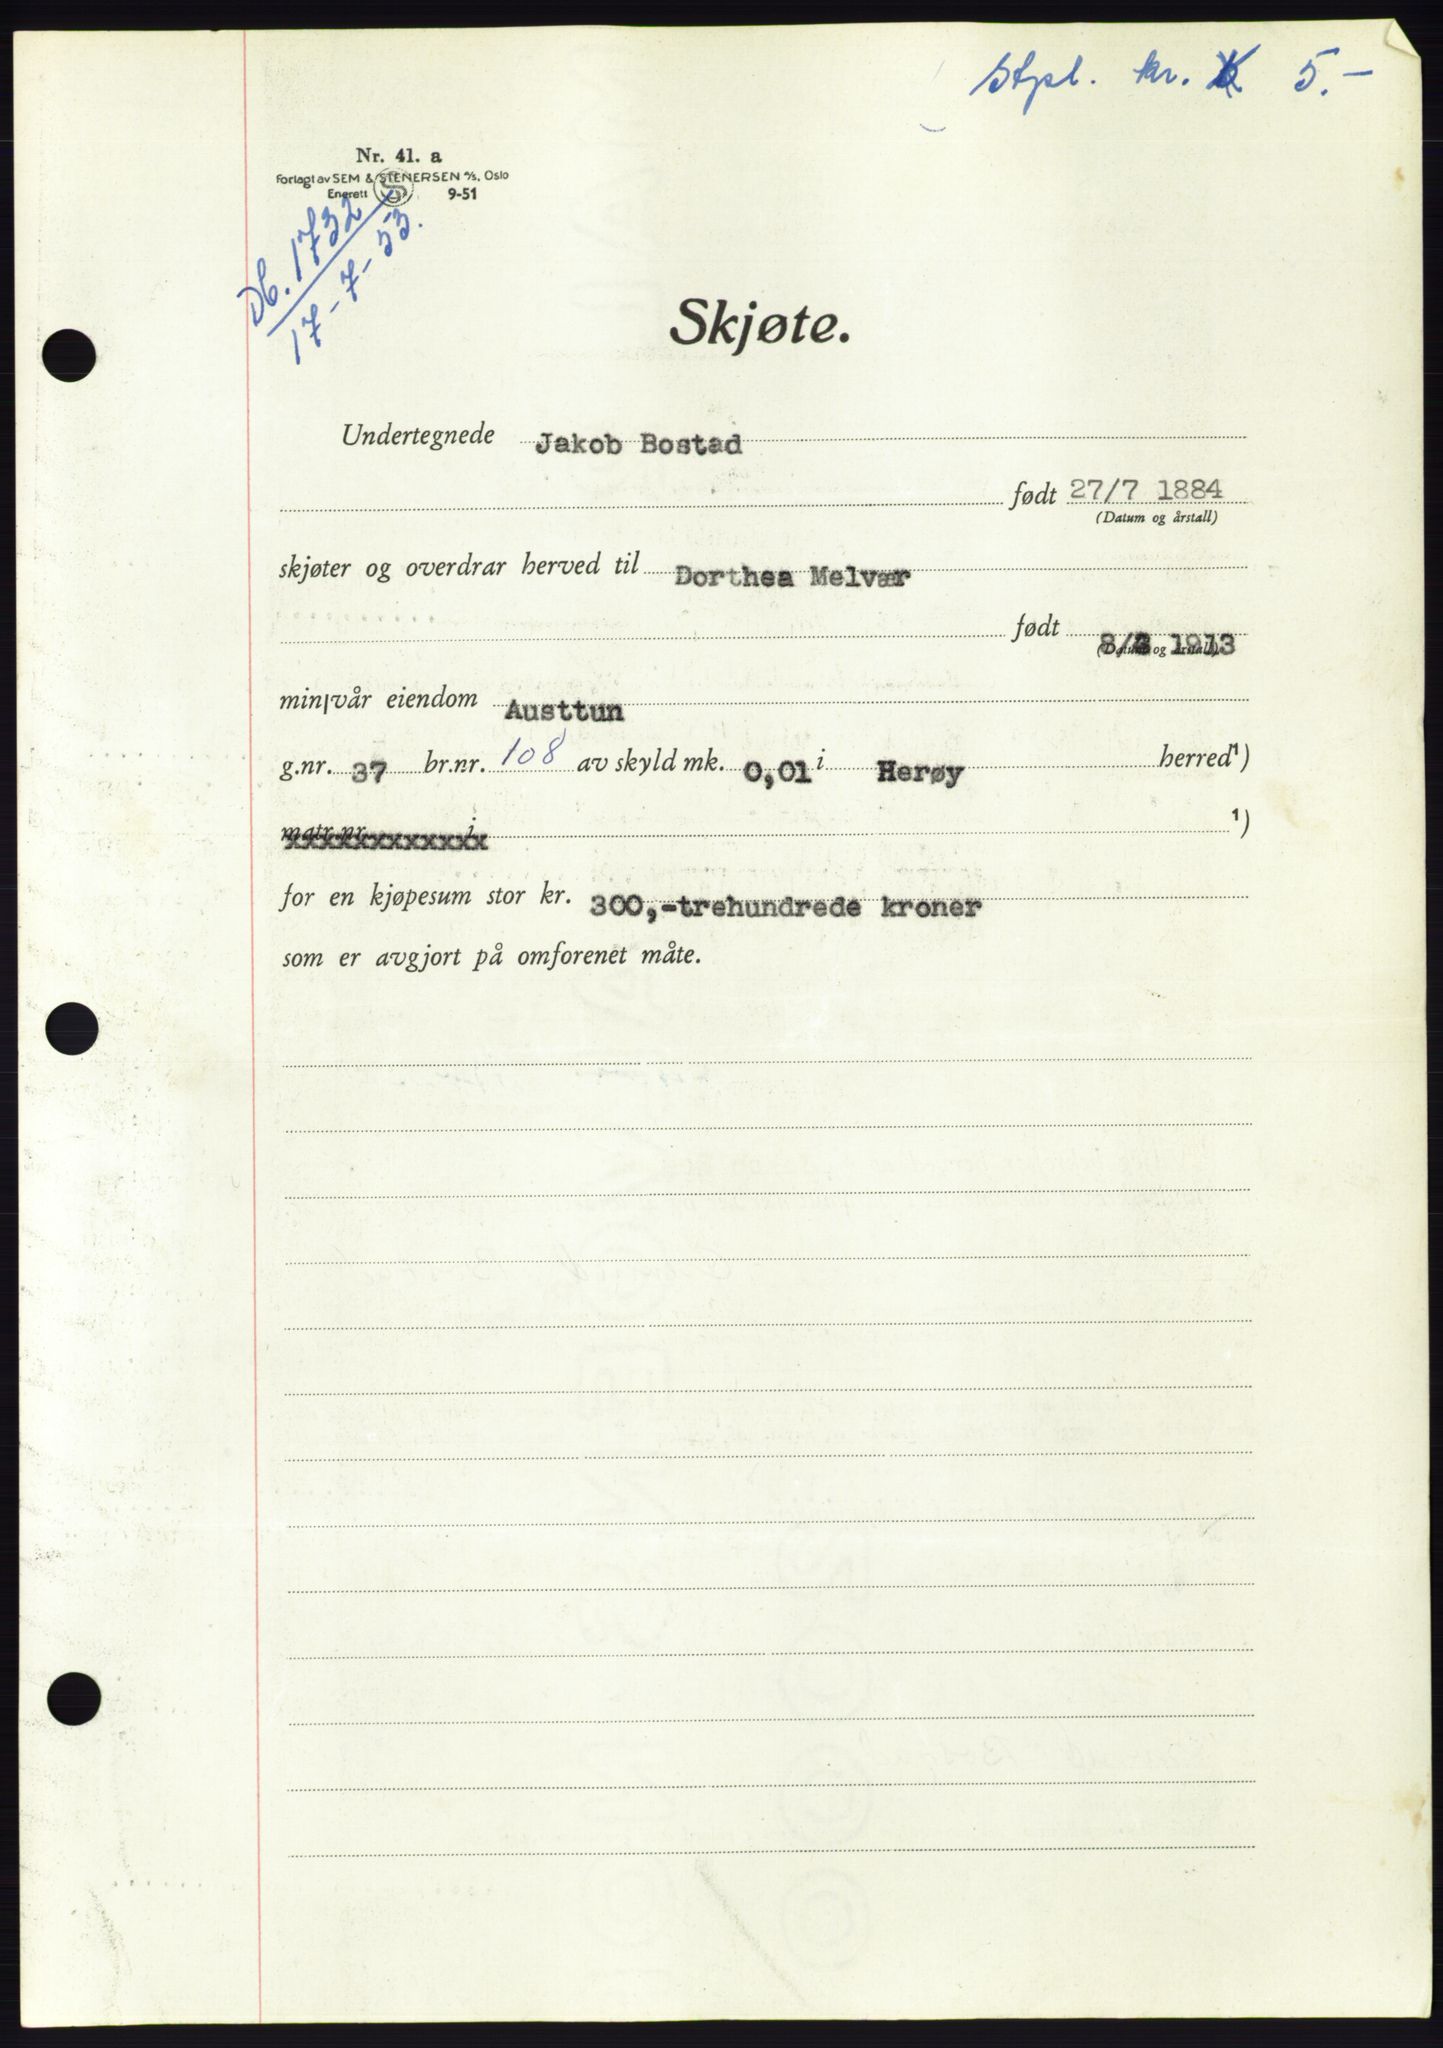 Stpl. kr. 5.-
Nr. 41. a
Forlagt av SEM & STENERSEN A/S, Oslo
Enerett S 9-51
Db. 1732
17-7-53.
Skjøte.
Undertegnede Jakob Bostad
født 27/7 1884
(Datum og årstall)
skjøter og overdrar herved til Dorthea Melvær
født 8/ 1913
(Datum og årstall)
min/vår eiendom Austtun
g.nr. 37 br.nr. 108 av skyld mk. 0,01 i Herøy herred¹)
matr.nr. i ¹)
for en kjøpesum stor kr. 300,-trehundrede kroner
som er avgjort på omforenet måte.